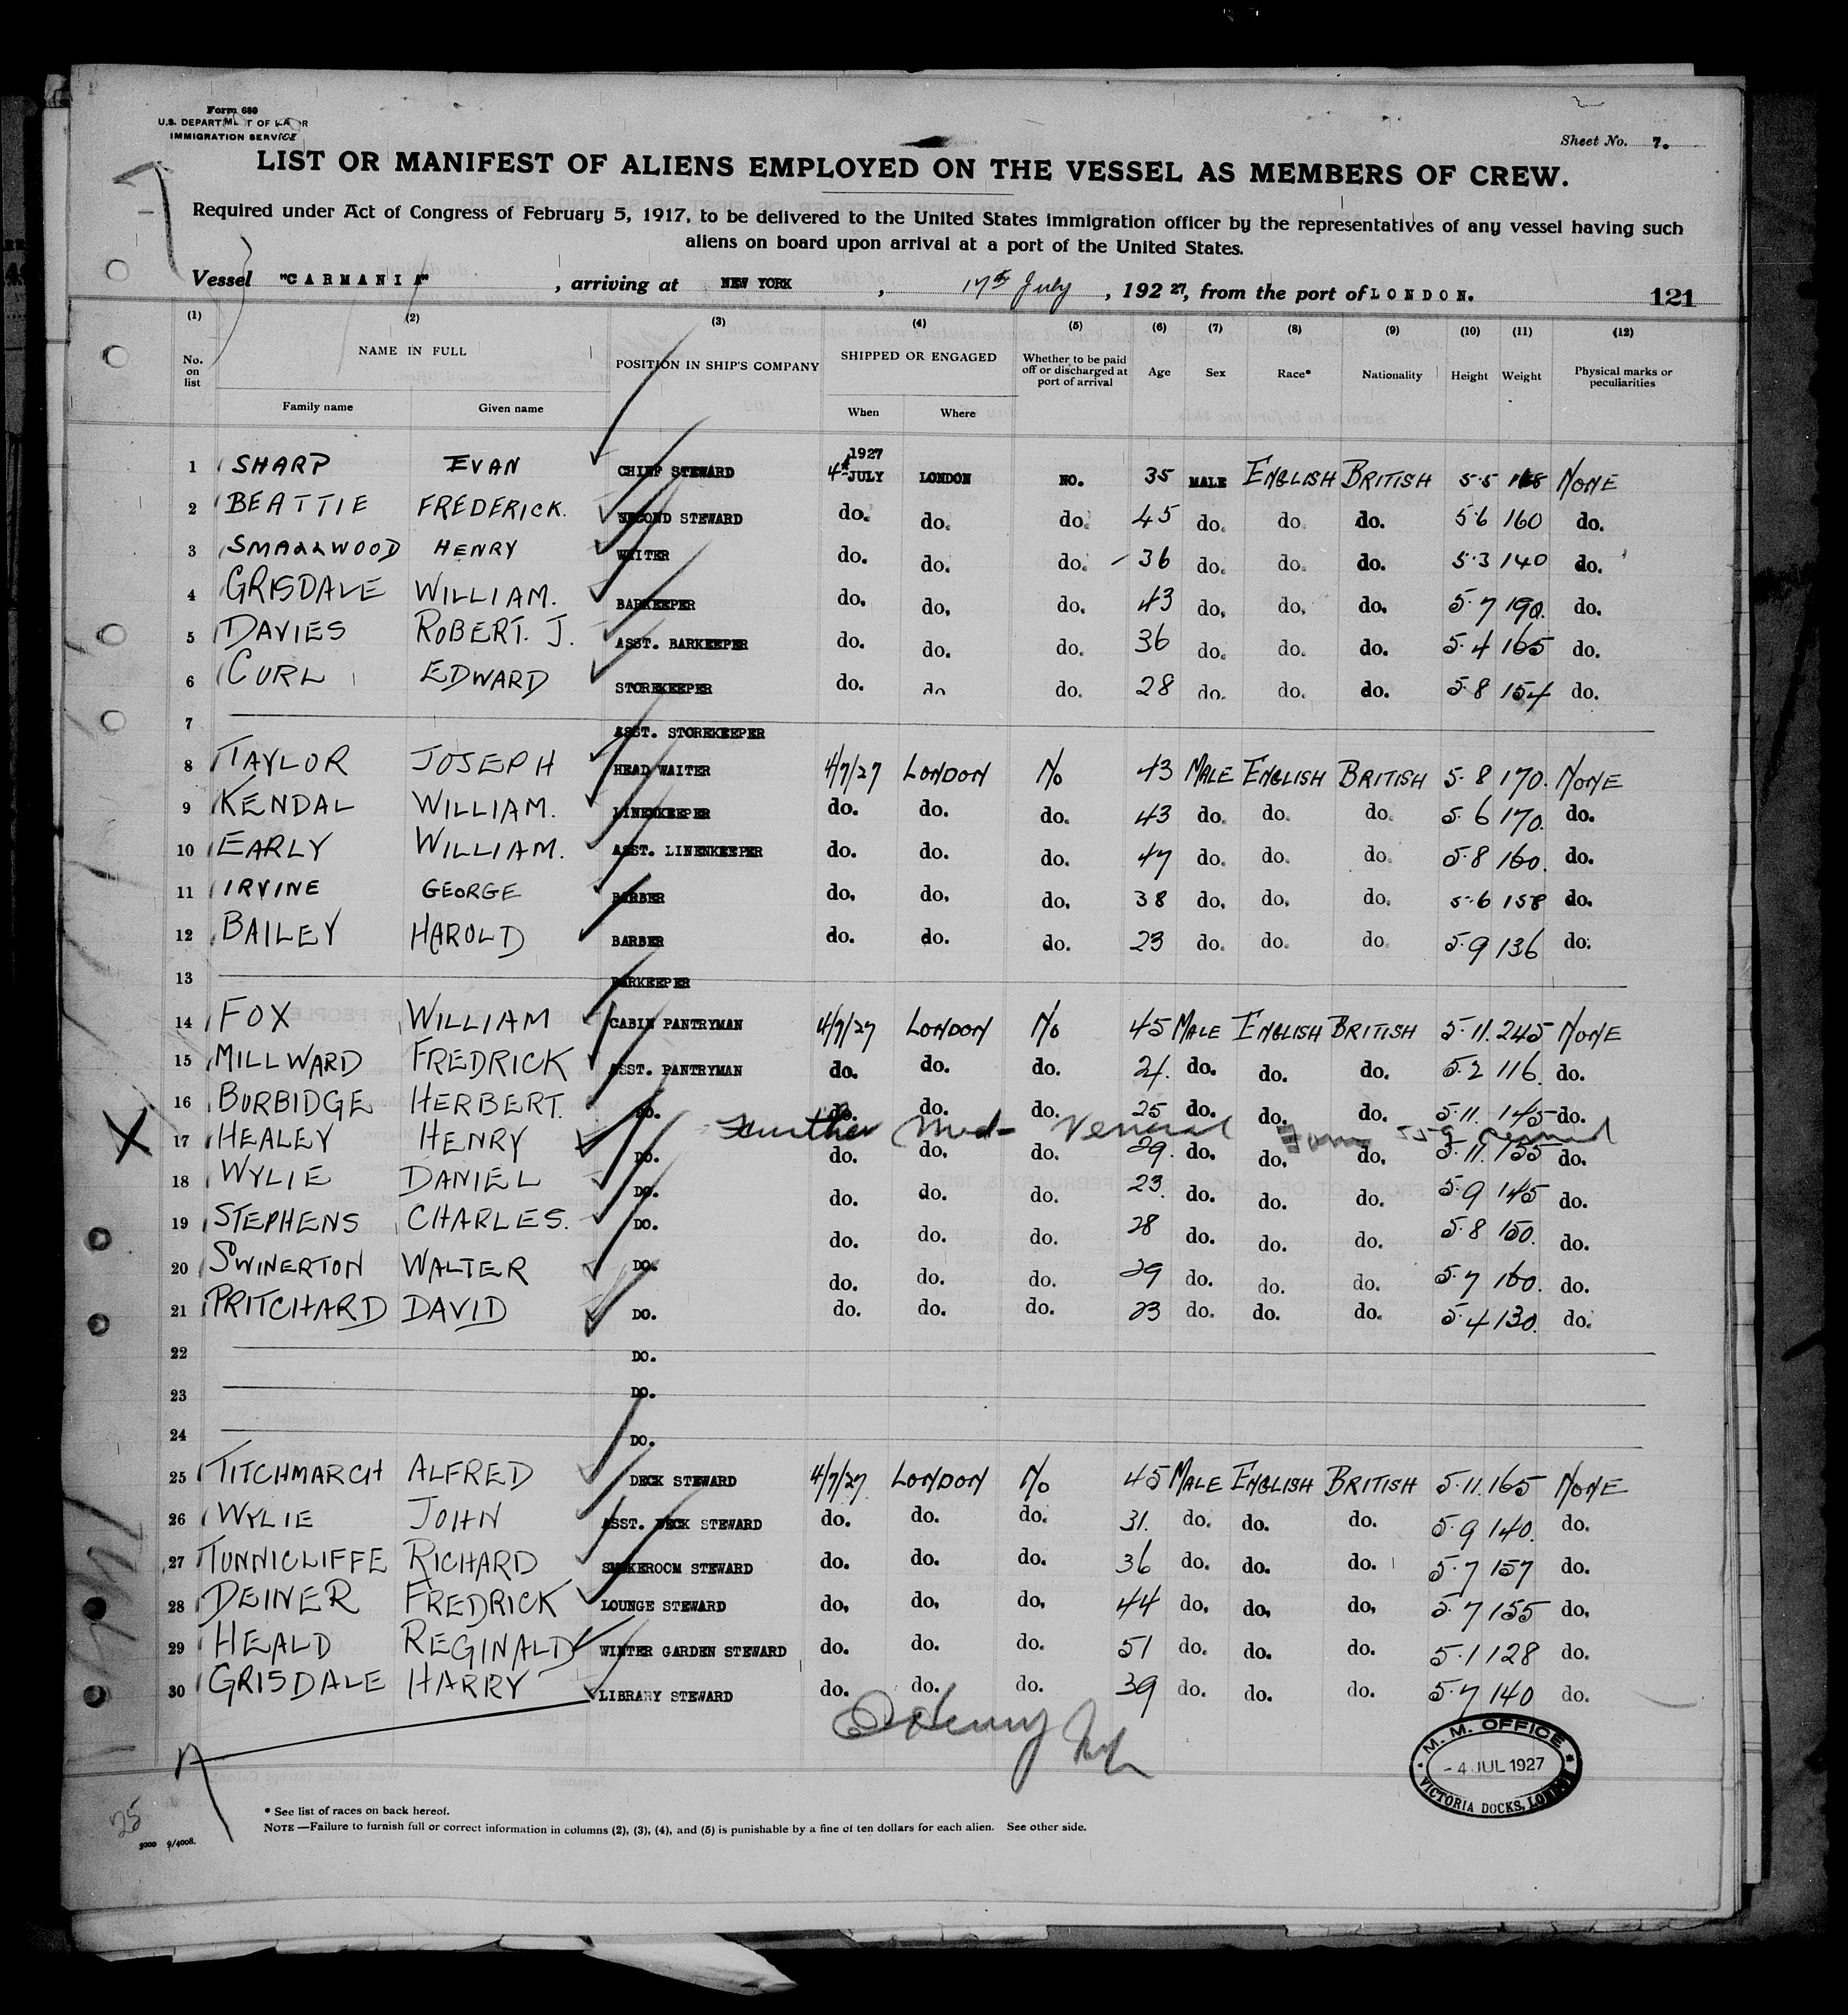 Form 680
U.S. DEPARTMENT OF LABOR
IMMIGRATION SERVICE
Sheet No. 7.
LIST OR MANIFEST OF ALIENS EMPLOYED ON THE VESSEL AS MEMBERS OF CREW.
Required under Act of Congress of February 5, 1917, to be delivered to the United States immigration officer by the representatives of any vessel having such
aliens on board upon arrival at a port of the United States.
Vessel "CARMANIA", arriving at NEW YORK, 17th July, 192 27, from the port of LONDON. 121
(1) (2) (3) (4) (5) (6) (7) (8) (9) (10) (11) (12)
No. on list NAME IN FULL POSITION IN SHIP'S COMPANY SHIPPED OR ENGAGED Whether to be paid off or discharged at port of arrival Age Sex Race* Nationality Height Weight Physical marks or peculiarities
Family name Given name When Where
1 SHARP EVAN CHIEF STEWARD 1927 4th JULY LONDON NO. 35 MALE ENGLISH BRITISH 5·5 NONE
2 BEATTIE FREDERICK. SECOND STEWARD do. do. do. 45 do. do. do. 5·6 160 do.
3 SMALLWOOD HENRY WAITER do. do. do. 36 do. do. do. 5·3 140 do.
4 GRISDALE WILLIAM. BARKEEPER do. do. do. 43 do. do. do. 5·7 190. do.
5 DAVIES ROBERT. J. ASST. BARKEEPER do. do. do. 36 do. do. do. 5·4 165 do.
6 CURL EDWARD STOREKEEPER do. do do. 28 do. do. do. 5·8 154 do.
7 ASST. STOREKEEPER
8 TAYLOR JOSEPH HEAD WAITER 4/7/27 LONDON No 43 MALE ENGLISH BRITISH 5·8 170. NONE
9 KENDAL WILLIAM. LINENKEEPER do. do. do. 43 do. do. do. 5·6 170. do.
10 EARLY WILLIAM. ASST. LINENKEEPER do. do. do. 47 do. do. do. 5·8 160. do.
11 IRVINE GEORGE BARBER do. do. do. 38 do. do. do. 5·6 158 do.
12 BAILEY HAROLD BARBER do. do. do. 23 do. do. do. 5·9 136 do.
13 BARKEEPER
14 FOX WILLIAM CABIN PANTRYMAN 4/7/27 LONDON No 45 MALE ENGLISH BRITISH 5·11. 245 NONE
15 MILLWARD FREDRICK ASST. PANTRYMAN do. do. do. 21. do. do. do. 5·2 116. do.
16 BURBIDGE HERBERT. DO. do. do. do. 25 do. do. do. 5·11. 145 do.
Further Med- Venereal Form
17 HEALEY HENRY DO. do. do. do. 29. do. do. do. 5·11. 155 do.
18 WYLIE DANIEL DO. do. do. do. 23. do. do. do. 5·9 145 do.
19 STEPHENS CHARLES. DO. do. do. do. 28 do. do. do. 5·8 150. do.
20 SWINERTON WALTER DO. do. do. do. 29 do. do. do. 5·7 160. do.
21 PRITCHARD DAVID DO. do. do. do. 23 do. do. do. 5·4 130. do.
22 DO.
23 DO.
24 DO.
25 TITCHMARCH ALFRED DECK STEWARD 4/7/27 LONDON No 45 MALE ENGLISH BRITISH 5·11. 165 NONE
26 WYLIE JOHN ASST. DECK STEWARD do. do. do. 31. do. do. do. 5·9 140. do.
27 TUNNICLIFFE RICHARD SMOKEROOM STEWARD do. do. do. 36 do. do. do. 5·7 157 do.
28 DEINER FREDRICK LOUNGE STEWARD do. do. do. 44 do. do. do. 5·7 155 do.
29 HEALD REGINALD WINTER GARDEN STEWARD do. do. do. 51 do. do. do. 5·1 128 do.
30 GRISDALE HARRY LIBRARY STEWARD do. do. do. 39 do. do. do. 5·7 140 do.
M. M. OFFICE
- 4 JUL 1927
VICTORIA DOCKS, LONDON
25
* See list of races on back hereof.
NOTE —Failure to furnish full or correct information in columns (2), (3), (4), and (5) is punishable by a fine of ten dollars for each alien. See other side.
5000 9/4008.